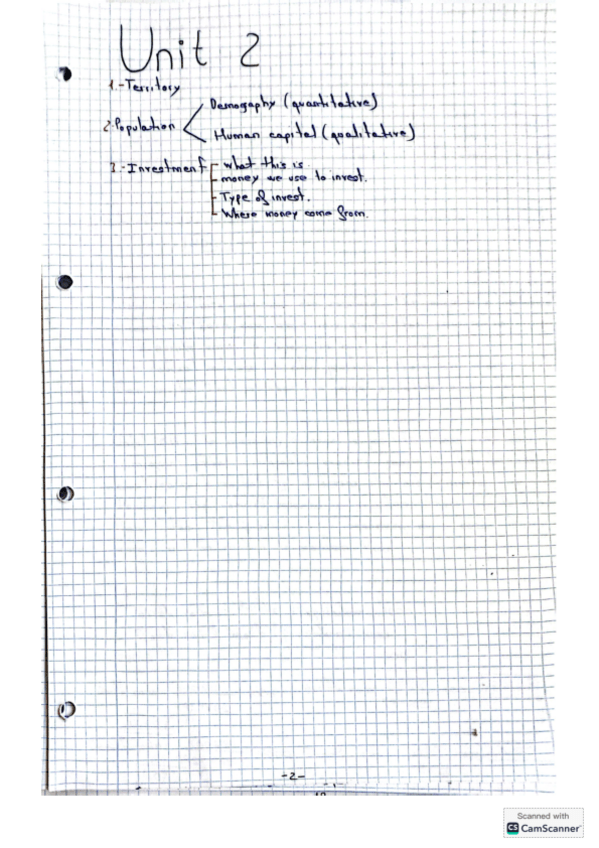 Unit 2
1.-Territory
Demography (quantitative)
2.Population
Human capital (qualitative)
3.-Investment
what this is.
money we use to invest.
Type of invest.
Where money come from.
-2-
Scanned with
CS CamScanner